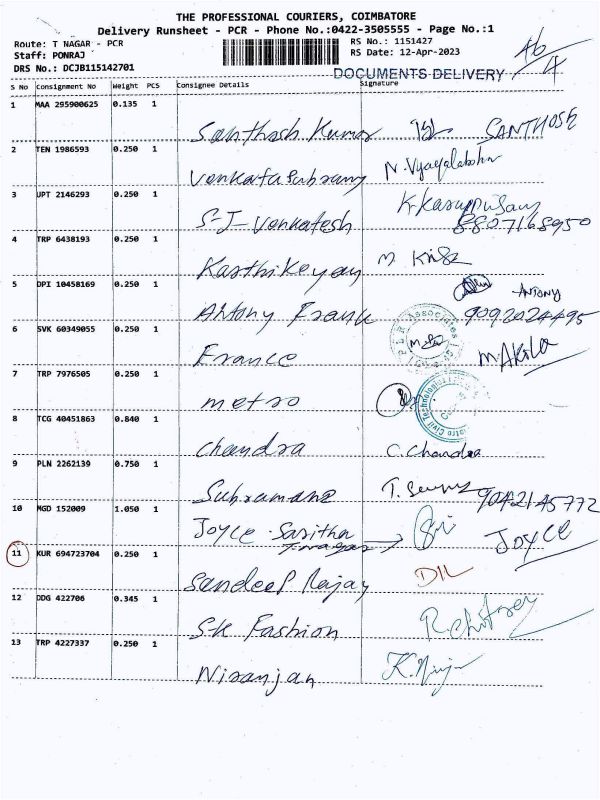 THE PROFESSIONAL COURIERS, COIMBATORE
Delivery Runsheet - PCR - Phone No.:0422-3505555 - Page No.:1
Route: T NAGAR - PCR
RS No.: 1151427
Staff: PONRAJ
RS Date: 12-Apr-2023
DRS No.: DCJB115142701
DOCUMENTS DELIVERY
S No Consignment No Weight PCS Consignee Details Signature
1 MAA 295900625 0.135 1
Santhosh Kumar SANTHOSH
2 TEN 1986593 0.250 1
Venkatasubramy N. Vijayalakshmi
3 JPT 2146293 0.250 1
S-J-Venkatesh K. Karuppusamy
8807168950
4 TRP 6438193 0.250 1
Karthikeyan M
5 DPI 10458169 0.250 1
ANTONY
Antony Frank 9092024495
6 SVK 60349055 0.250 1
PLR Associates
France M. Akila
7 TRP 7976505 0.250 1
metro
8 TCG 40451863 0.840 1
Chandra C. Chandra
9 PLN 2262139 0.750 1
Subramani T. 9042145772
10 MGD 152009 1.050 1
Joyce Saritha
T.nagar JOYCE
11 KUR 694723704 0.250 1
Sandeep Rajay
12 DDG 422706 0.345 1
S.K Fashion
13 TRP 4227337 0.250 1
Niranjan